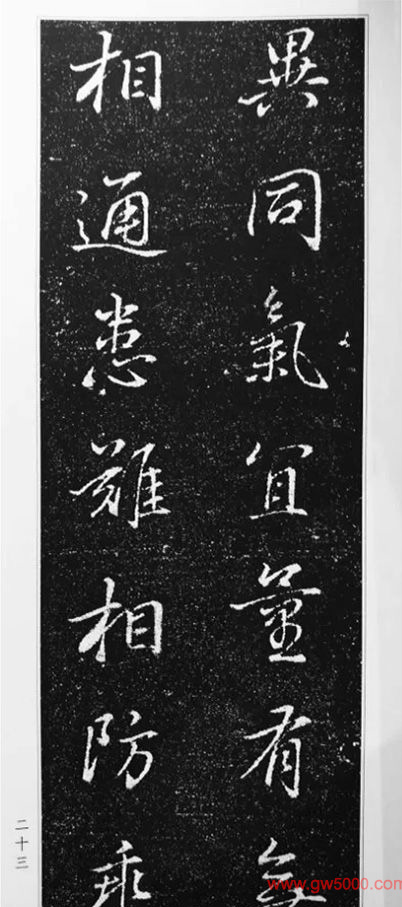 異同氣宜量有無
相通患難相防
二十三
www.gw5000.com